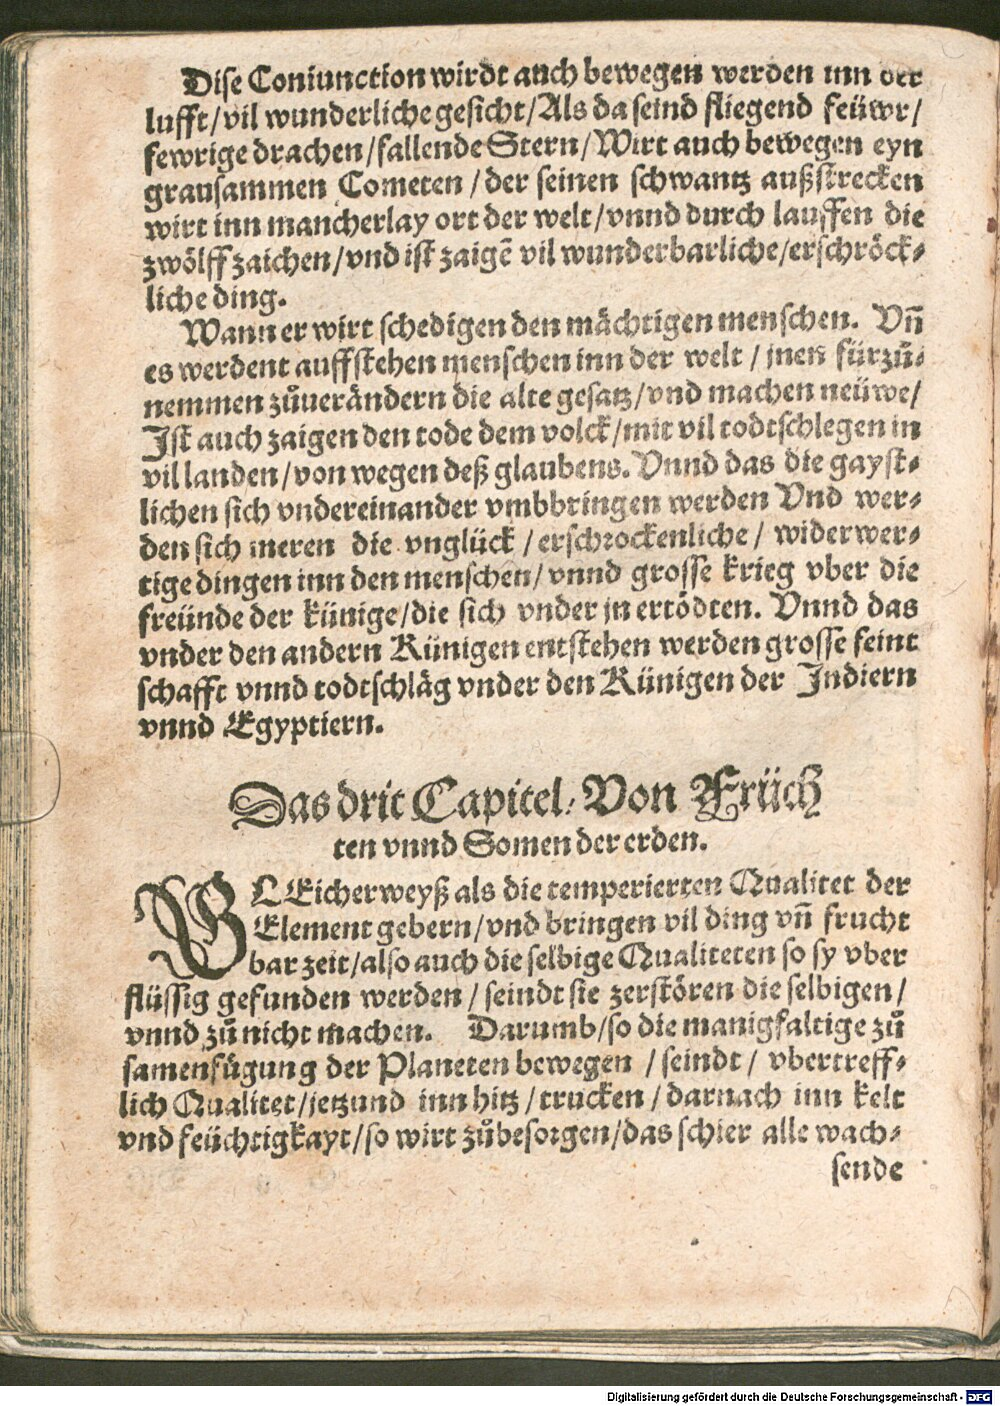 Dise Coniunction wirdt auch bewegen werden inn der
lufft/vil wunderliche gesicht/Als da seind fliegend feüwr/
fewrige drachen/fallende Stern/Wirt auch bewegen eyn
grausammen Cometen/der seinen schwantz außstrecken
wirt inn mancherlay ort der welt/vnnd durch lauffen die
zwölff zaichen/vnd ist zaigẽ vil wunderbarliche/erschröck⸗
liche ding.
Wann er wirt schedigen den mächtigen menschen. Vñ
es werdent auffstehen menschen inn der welt/jnen fürzů⸗
nemmen zůuerändern die alte gesatz/vnd machen neüwe/
Ist auch zaigen den tode dem volck/mit vil todtschlegen in
vil landen/von wegen deß glaubens. Vnnd das die gayst⸗
lichen sich vndereinander vmbbringen werden Vnd wer⸗
den sich meren die vnglück/erschrockenliche/widerwer⸗
tige dingen inn den menschen/vnnd grosse krieg vber die
freünde der künige/die sich vnder jn ertödten. Vnnd das
vnder den andern Künigen entstehen werden grosse feint
schafft vnnd todtschläg vnder den Künigen der Indiern
vnnd Egyptiern.
Das drit Capitel/Von Früch
ten vnnd Somen der erden.
GLEicherweyß als die temperierten Qualitet der
Element gebern/vnd bringen vil ding vñ frucht
bar zeit/also auch die selbige Qualiteten so sy vber
flüssig gefunden werden/seindt sie zerstören die selbigen/
vnnd zů nicht machen. Darumb/so die manigfaltige zů
samenfügung der Planeten bewegen/seindt/vbertreff⸗
lich Qualitet/jetzund inn hitz/trucken/darnach inn kelt
vnd feüchtigkayt/so wirt zůbesorgen/das schier alle wach⸗
sende
Digitalisierung gefördert durch die Deutsche Forschungsgemeinschaft - DFG